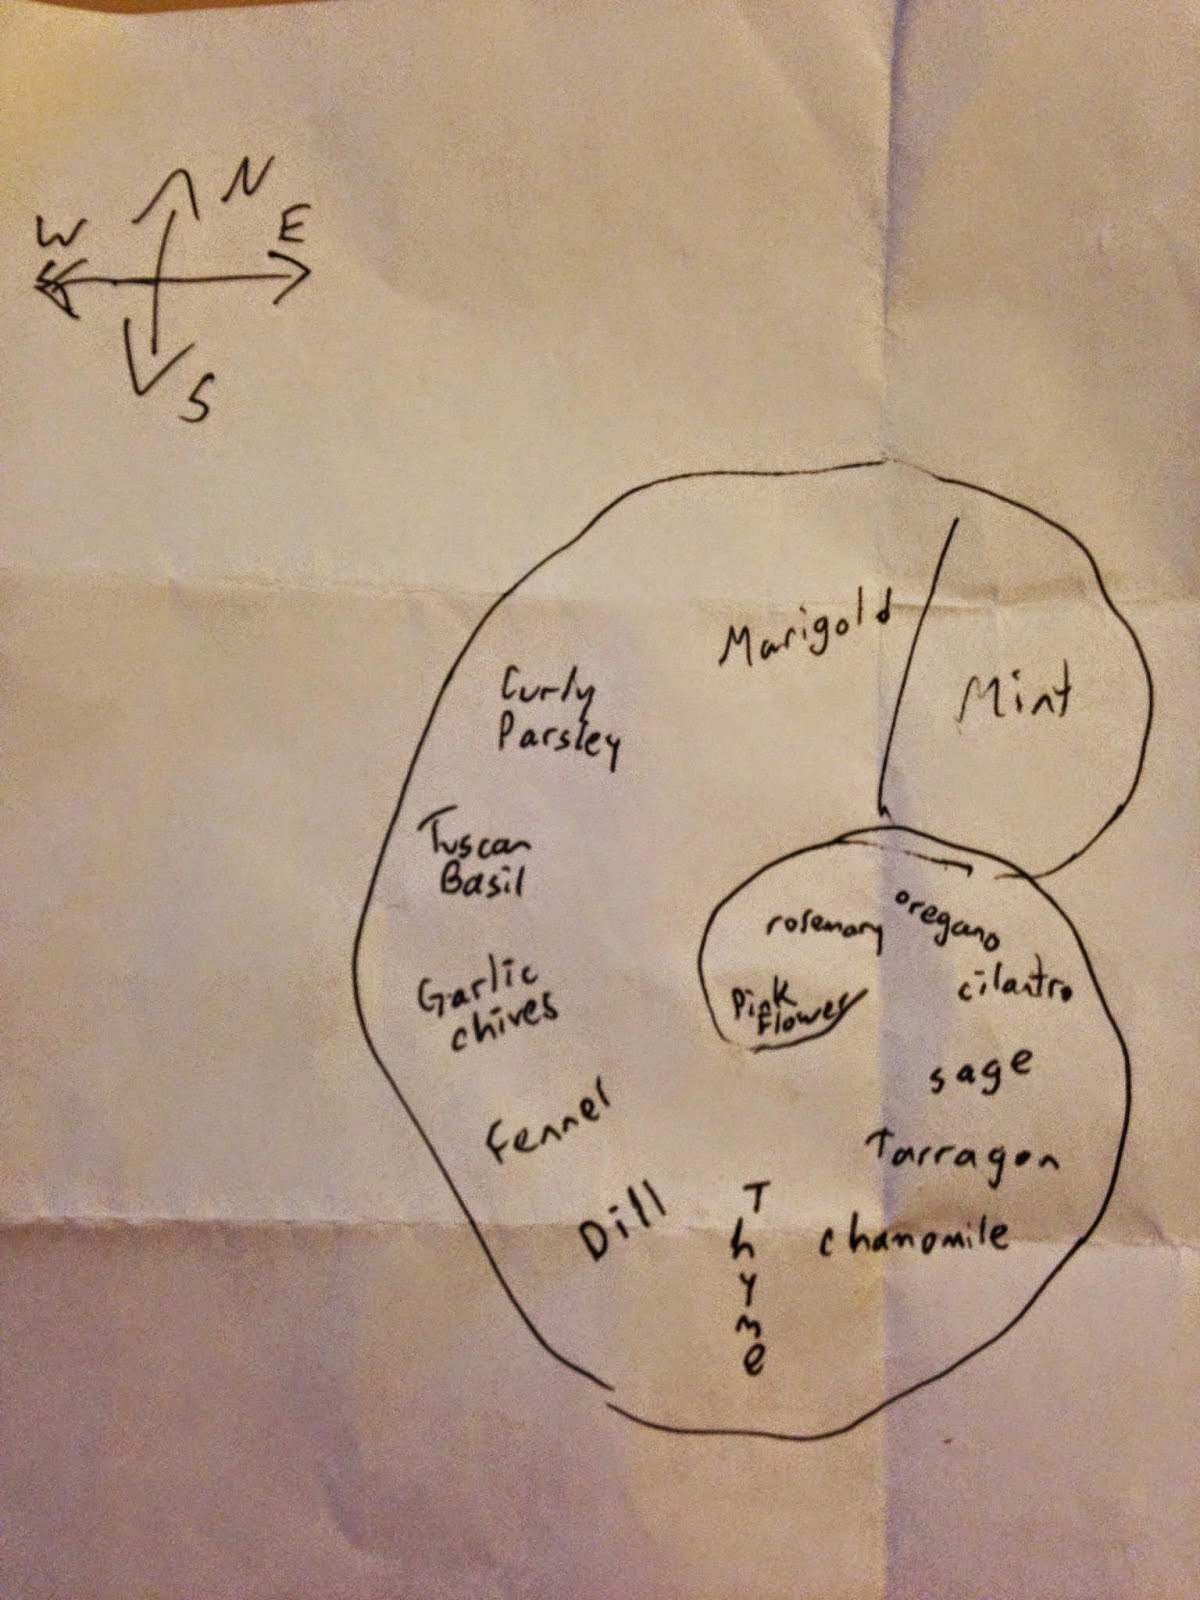 N
W
E
S
Marigold
Mint
Curly
Parsley
Tuscan
Basil
Garlic
chives
Fennel
Dill
Thyme
chanomile
Tarragon
sage
cilantro
oregano
rosemary
Pink
Flower